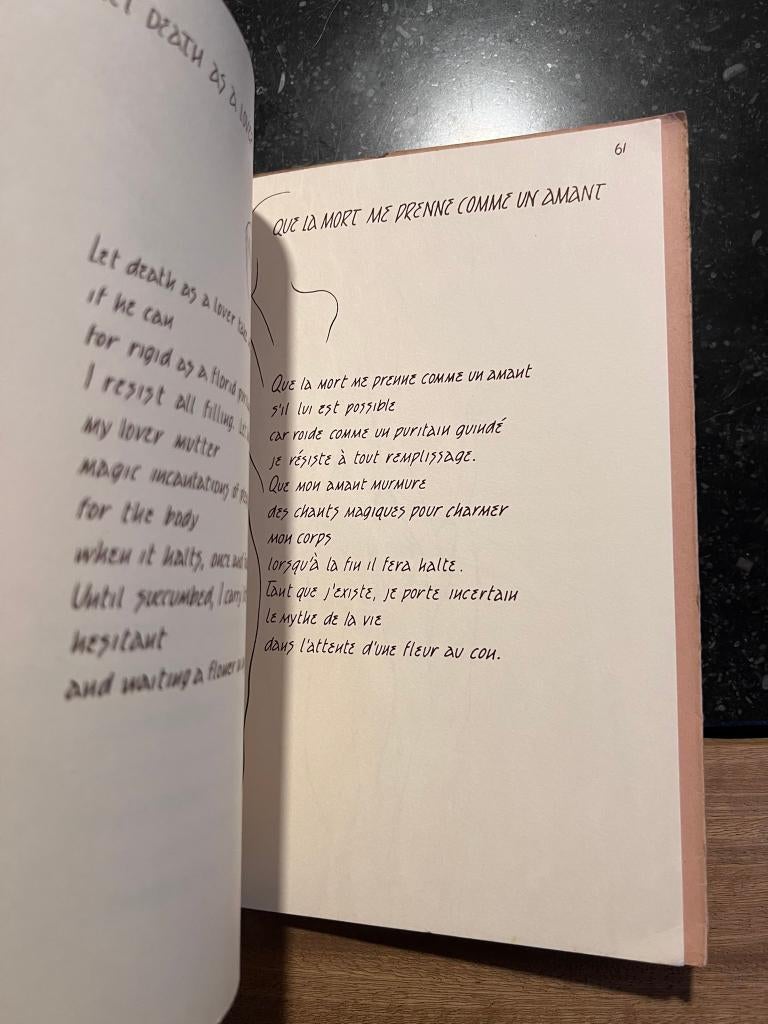 DEATH AS A
Let death as a lover
if he can
for rigid as a florid
I resist all filling. Let
my lover mutter
magic incantations of
for the body
when it halts, once and
Until succumbed, I carry
hesitant
and waiting a flower
61
QUE LA MORT ME PRENNE COMME UN AMANT
Que la mort me prenne comme un amant
s'il lui est possible
car roide comme un puritain guindé
je résiste à tout remplissage.
Que mon amant murmure
des chants magiques pour charmer
mon corps
lorsqu'à la fin il fera halte.
Tant que j'existe, je porte incertain
le mythe de la vie
dans l'attente d'une fleur au con.